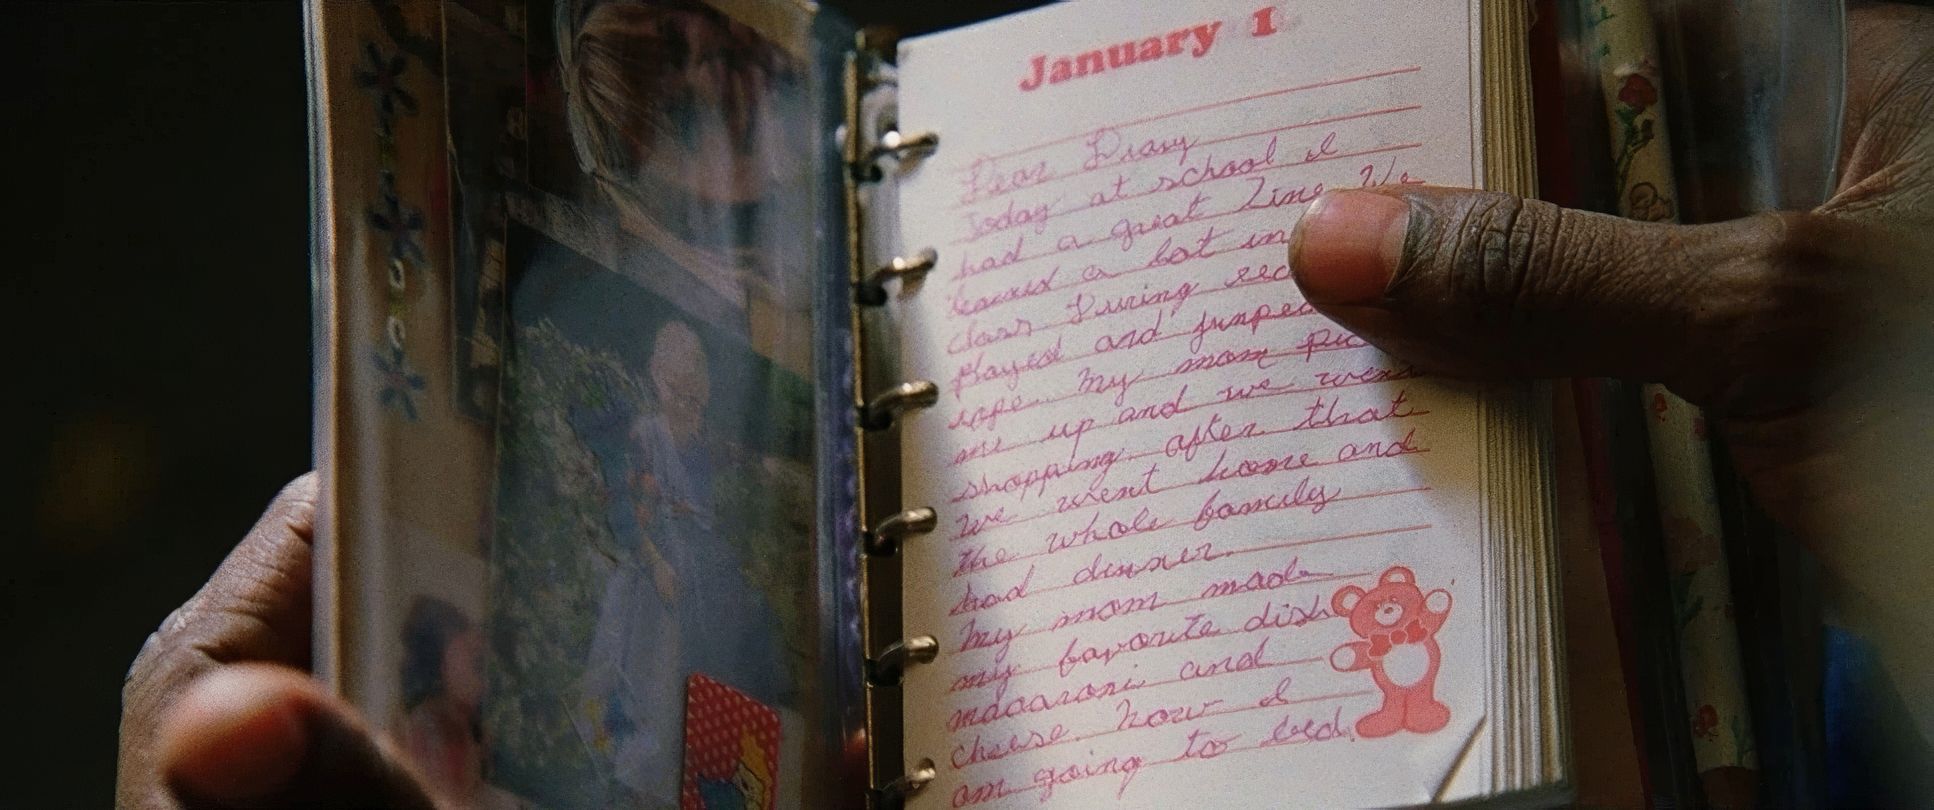 January 1
Dear Diary
Today at school I
had a great Time We
learned a lot in
class During rec
played and jumped
rope. My mom pic
me up and we went
shopping. after that
we went home and
the whole family
had dinner.
My mom made
my favorite dish
macaroni and
cheese. Now I
am going to bed.